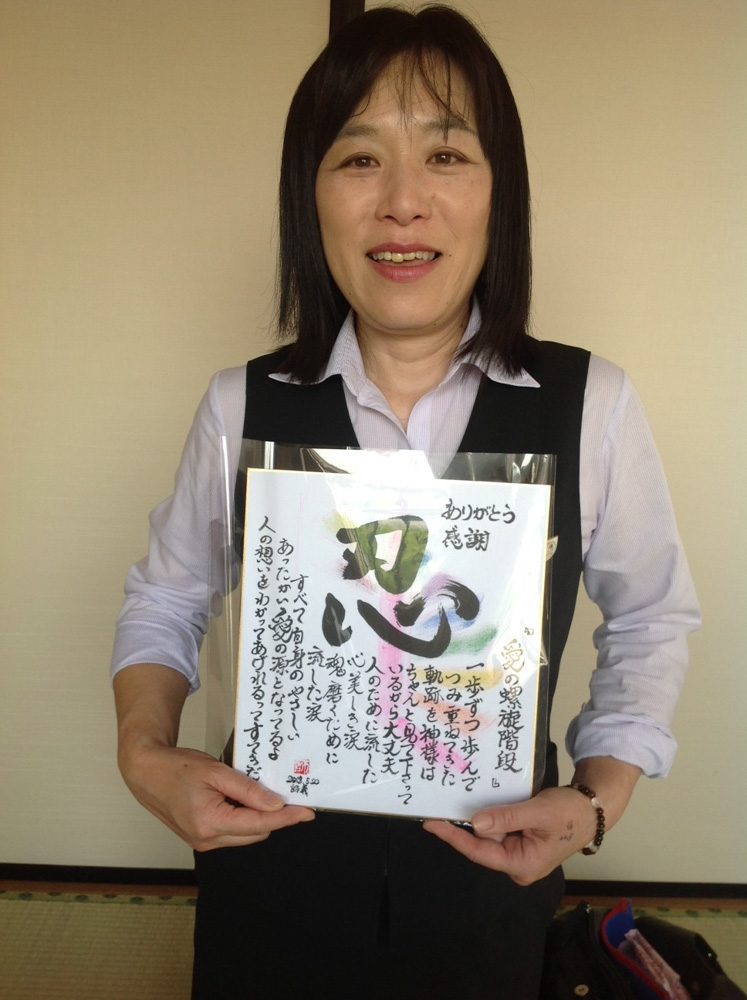 ありがとう
感謝
忍
「愛の螺旋階段」
一歩ずつ歩んで
つみ重ねてきた
軌跡を神様は
ちゃんと見て下さって
いるから大丈夫
人のために流した
心美しき涙
魂磨くために
流した涙
すべて自身のやさしい
あったかい愛の源となってるよ
人の想いをわかってあげれるってすてきだ